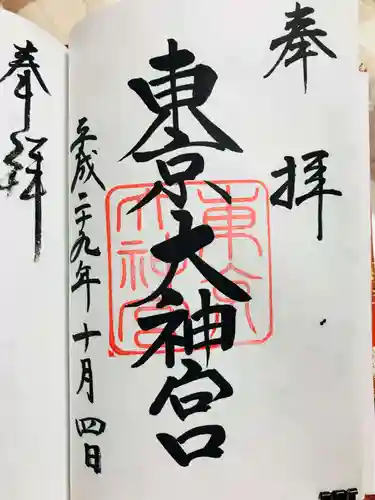 奉拝
東京大神宮
東京大神宮
平成二十九年十月四日
奉拝